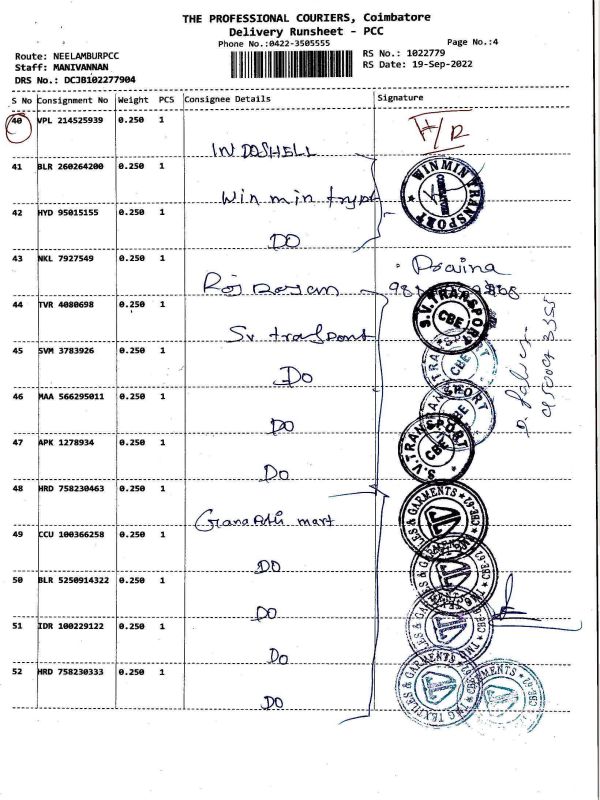 THE PROFESSIONAL COURIERS, Coimbatore
Delivery Runsheet - PCC
Phone No.:0422-3505555
Page No.:4
Route: NEELAMBURPCC
Staff: MANIVANNAN
DRS No.: DCJB102277904
RS No.: 1022779
RS Date: 19-Sep-2022
S No Consignment No Weight PCS Consignee Details Signature
40 VPL 214525939 0.250 1
INDOSHELL
41 BLR 260264200 0.250 1
Win min
WINMIN TRANSPORT
COIMBATORE
42 HYD 95015155 0.250 1
DO
43 NKL 7927549 0.250 1
44 TVR 4080698 0.250 1
Sv
S.V.TRANSPORT
CBE
45 SVM 3783926 0.250 1
DO
CBE
46 MAA 566295011 0.250 1
DO
TRANSPORT
CBE
47 APK 1278934 0.250 1
DO
S.V.TRANSPORT
CBE
48 HRD 758230463 0.250 1
mart
& GARMENTS
CBE-62
49 CCU 100366258 0.250 1
DO
50 BLR 5250914322 0.250 1
DO
51 IDR 100229122 0.250 1
DO
52 HRD 758230333 0.250 1
DO
TMG TEXTILES & GARMENTS